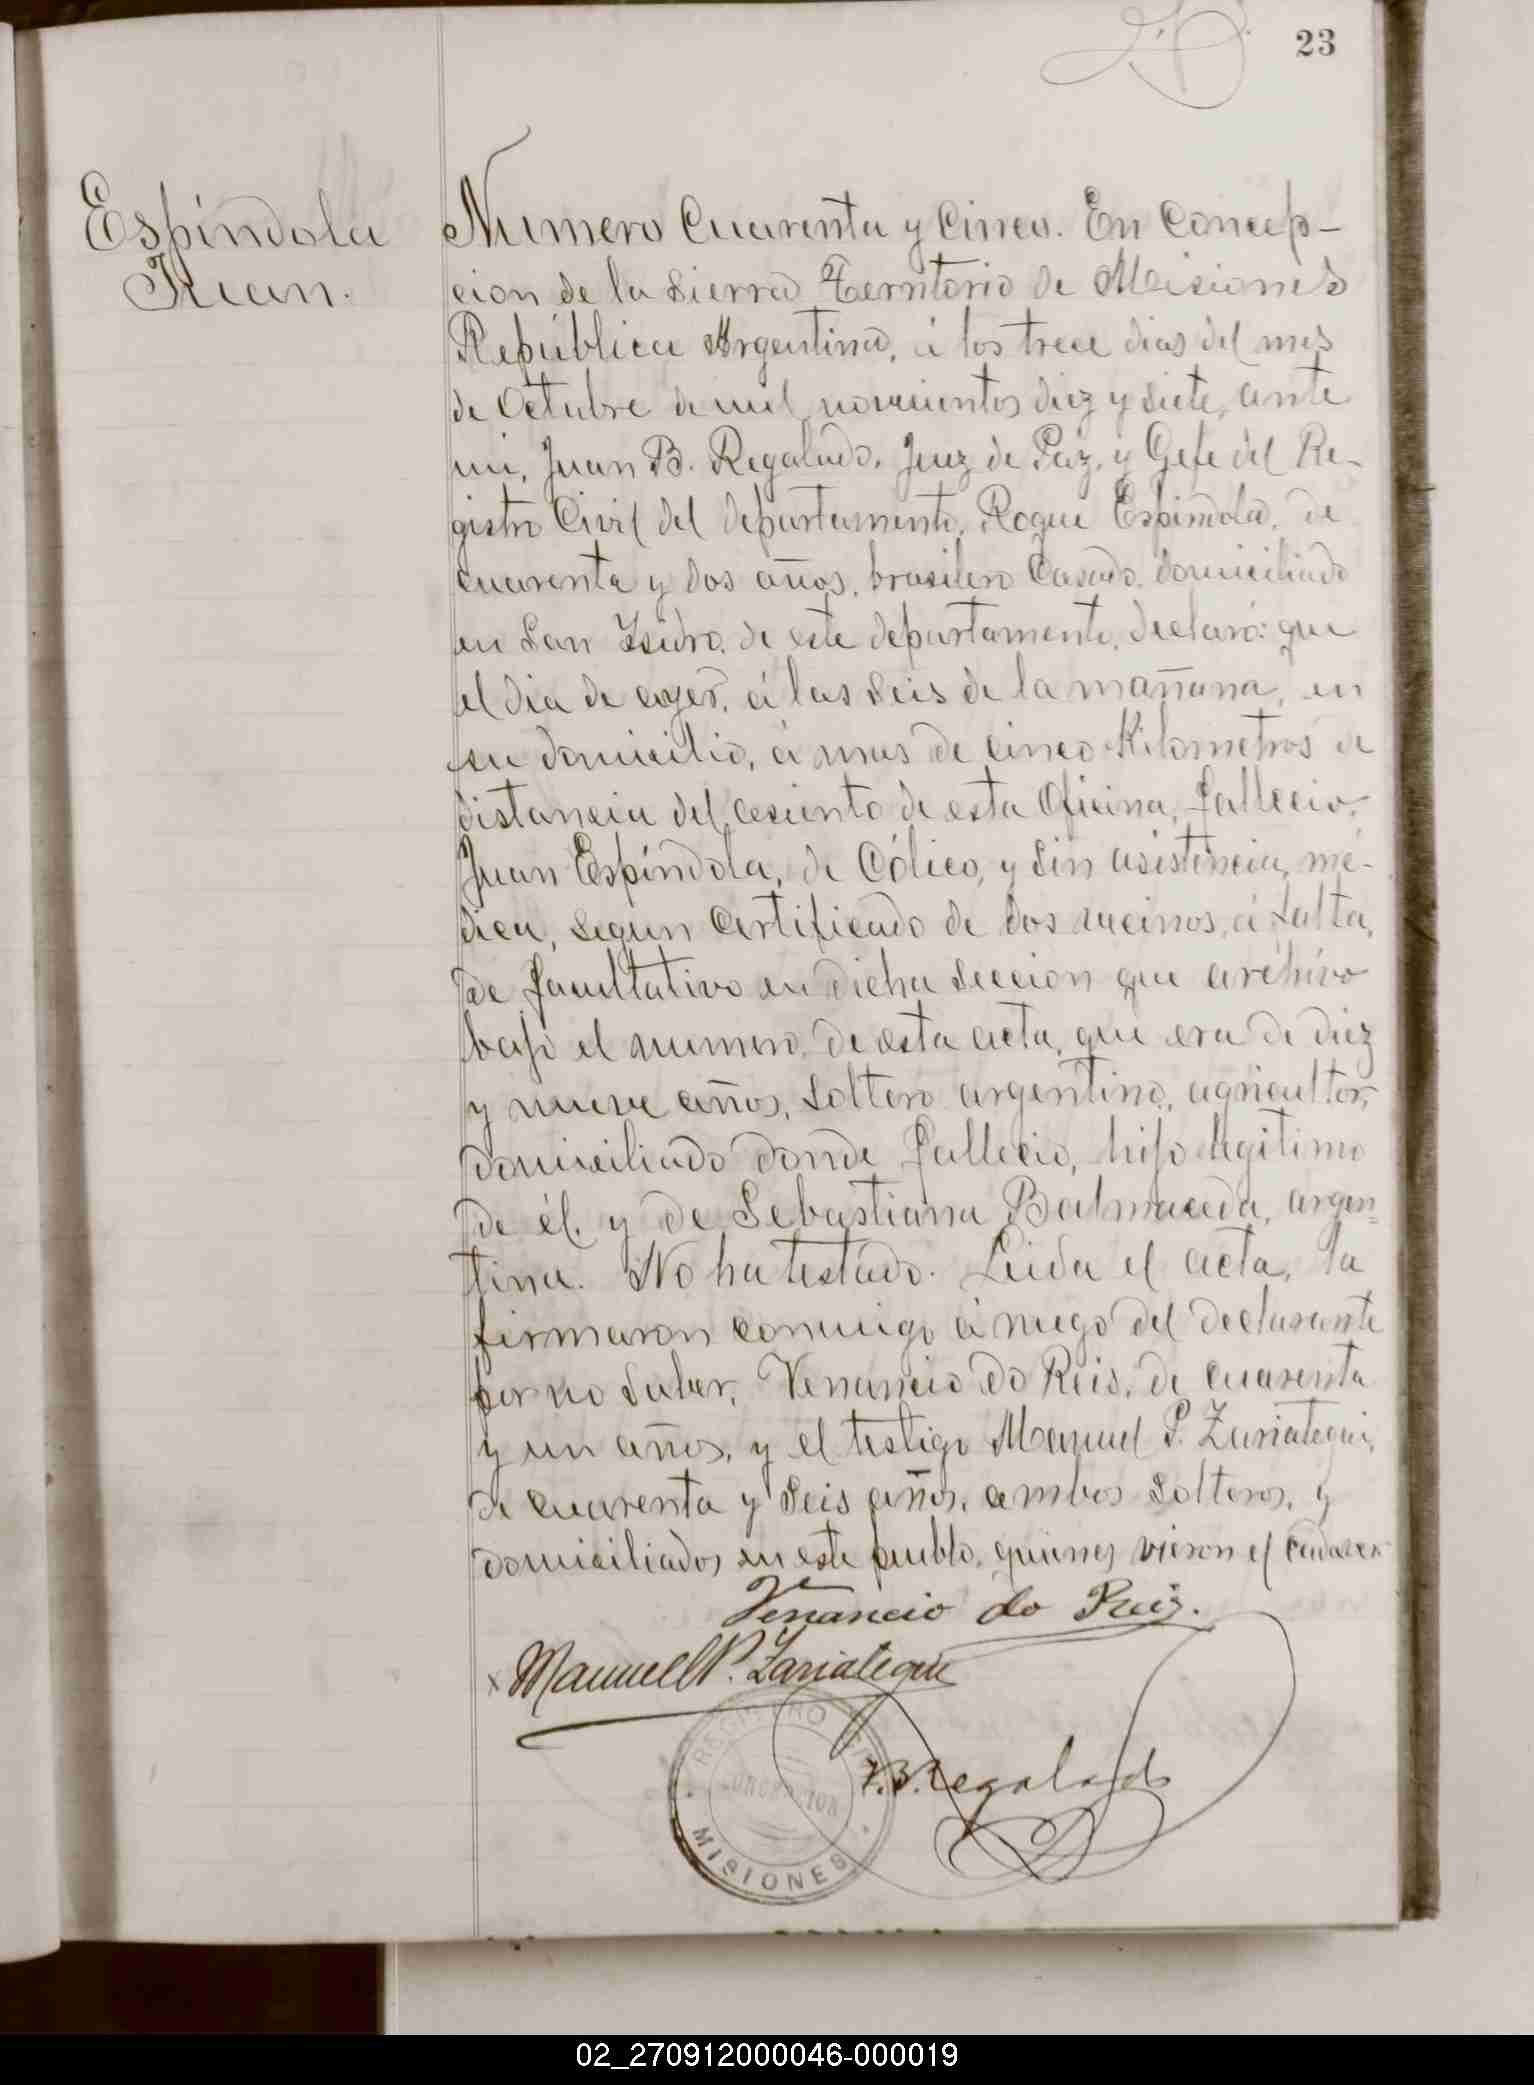 23
Espíndola
Juan.
Numero Cuarenta y Cinco. En Concep-
cion de la Sierra Territorio de Misiones
República Argentina, á los trece dias del mes
de Octubre de mil novecientos diez y siete, ante
mi, Juan B. Regalado, Juez de Paz, y Gefe del Re-
gistro Civil del departamento, Roque Espindola, de
cuarenta y dos años, brasilero Casado, domiciliado
en San Isidro, de este departamento, declaró: que
el dia de ayer, á las seis de la mañana, en
su domicilio, á mas de cinco Kilometros de
distancia del asiento de esta Oficina, fallecio,
Juan Espíndola, de Cólico, y sin asistencia mé-
dica, segun certificado de dos vecinos, á falta
de facultativo en dicha seccion que archivo
bajo el numero de esta acta, que era de diez
y nueve años, soltero argentino, agricultor,
domiciliado donde fallecio, hijo legitimo
de él y de Sebastiana Balmaceda, argen=
tina. No ha testado. Leida el acta, la
firmaron conmigo á ruego del declarante
por no saber, Venancio do Reis, de cuarenta
y un años, y el testigo Manuel P. Zuriategui,
de cuarenta y seis años, ambos solteros, y
domiciliados en este pueblo, quienes vieron el cadaver
Venancio do Reis.
x Manuel P. Zariategui
J.B. Regalado
REGISTRO CIVIL
CONCEPCION
MISIONES
02_270912000046-000019